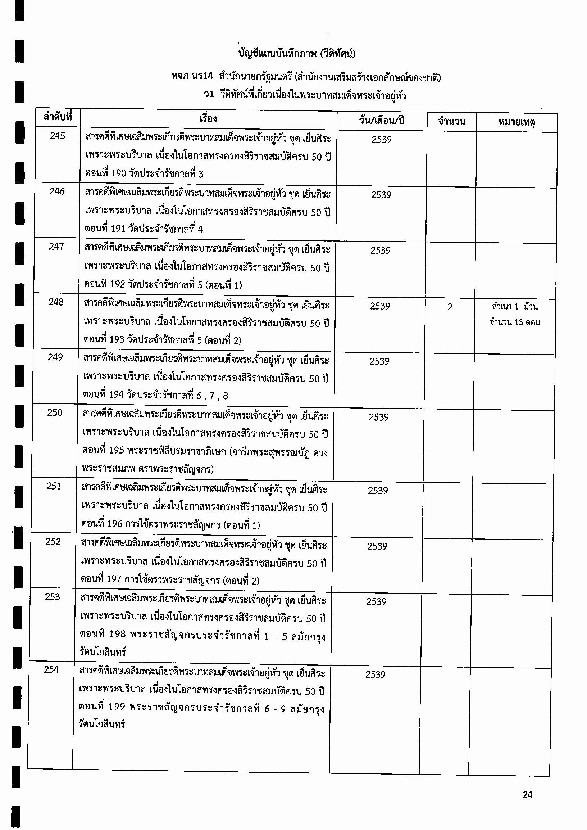 บัญชีแถบบันทึกภาพ (วีดิทัศน์)
หจภ นร14 สำนักนายกรัฐมนตรี (สำนักงานเสริมสร้างเอกลักษณ์ของชาติ)
ว1 วีดิทัศน์ที่เกี่ยวเนื่องในพระบาทสมเด็จพระเจ้าอยู่หัว
ลำดับที่ เรื่อง วัน/เดือน/ปี จำนวน หมายเหตุ
245 สารคดีพิเศษเฉลิมพระเกียรติพระบาทสมเด็จพระเจ้าอยู่หัว ชุด เย็นศิระ 2539
เพราะพระบริบาล เนื่องในโอกาสทรงครองสิริราชสมบัติครบ 50 ปี
ตอนที่ 190 วัดประจำรัชกาลที่ 3
246 สารคดีพิเศษเฉลิมพระเกียรติพระบาทสมเด็จพระเจ้าอยู่หัว ชุด เย็นศิระ 2539
เพราะพระบริบาล เนื่องในโอกาสทรงครองสิริราชสมบัติครบ 50 ปี
ตอนที่ 191 วัดประจำรัชกาลที่ 4
247 สารคดีพิเศษเฉลิมพระเกียรติพระบาทสมเด็จพระเจ้าอยู่หัว ชุด เย็นศิระ 2539
เพราะพระบริบาล เนื่องในโอกาสทรงครองสิริราชสมบัติครบ 50 ปี
ตอนที่ 192 วัดประจำรัชกาลที่ 5 (ตอนที่ 1)
248 สารคดีพิเศษเฉลิมพระเกียรติพระบาทสมเด็จพระเจ้าอยู่หัว ชุด เย็นศิระ 2539 2 สำเนา 1 ม้วน
เพราะพระบริบาล เนื่องในโอกาสทรงครองสิริราชสมบัติครบ 50 ปี จำนวน 16 ตอน
ตอนที่ 193 วัดประจำรัชกาลที่ 5 (ตอนที่ 2)
249 สารคดีพิเศษเฉลิมพระเกียรติพระบาทสมเด็จพระเจ้าอยู่หัว ชุด เย็นศิระ 2539
เพราะพระบริบาล เนื่องในโอกาสทรงครองสิริราชสมบัติครบ 50 ปี
ตอนที่ 194 วัดประจำรัชกาลที่ 6 , 7 , 8
250 สารคดีพิเศษเฉลิมพระเกียรติพระบาทสมเด็จพระเจ้าอยู่หัว ชุด เย็นศิระ 2539
เพราะพระบริบาล เนื่องในโอกาสทรงครองสิริราชสมบัติครบ 50 ปี
ตอนที่ 195 พระราชพิธีบรมราชาภิเษก (จารึกพระสุพรรณบัฏ ดวง
พระราชสมภพ ตราพระราชลัญจกร)
251 สารคดีพิเศษเฉลิมพระเกียรติพระบาทสมเด็จพระเจ้าอยู่หัว ชุด เย็นศิระ 2539
เพราะพระบริบาล เนื่องในโอกาสทรงครองสิริราชสมบัติครบ 50 ปี
ตอนที่ 196 การใช้ตราพระราชลัญจกร (ตอนที่ 1)
252 สารคดีพิเศษเฉลิมพระเกียรติพระบาทสมเด็จพระเจ้าอยู่หัว ชุด เย็นศิระ 2539
เพราะพระบริบาล เนื่องในโอกาสทรงครองสิริราชสมบัติครบ 50 ปี
ตอนที่ 197 การใช้ตราพระราชลัญจกร (ตอนที่ 2)
253 สารคดีพิเศษเฉลิมพระเกียรติพระบาทสมเด็จพระเจ้าอยู่หัว ชุด เย็นศิระ 2539
เพราะพระบริบาล เนื่องในโอกาสทรงครองสิริราชสมบัติครบ 50 ปี
ตอนที่ 198 พระราชลัญจกรประจำรัชกาลที่ 1 - 5 สมัยกรุง
รัตนโกสินทร์
254 สารคดีพิเศษเฉลิมพระเกียรติพระบาทสมเด็จพระเจ้าอยู่หัว ชุด เย็นศิระ 2539
เพราะพระบริบาล เนื่องในโอกาสทรงครองสิริราชสมบัติครบ 50 ปี
ตอนที่ 199 พระราชลัญจกรประจำรัชกาลที่ 6 - 9 สมัยกรุง
รัตนโกสินทร์
24